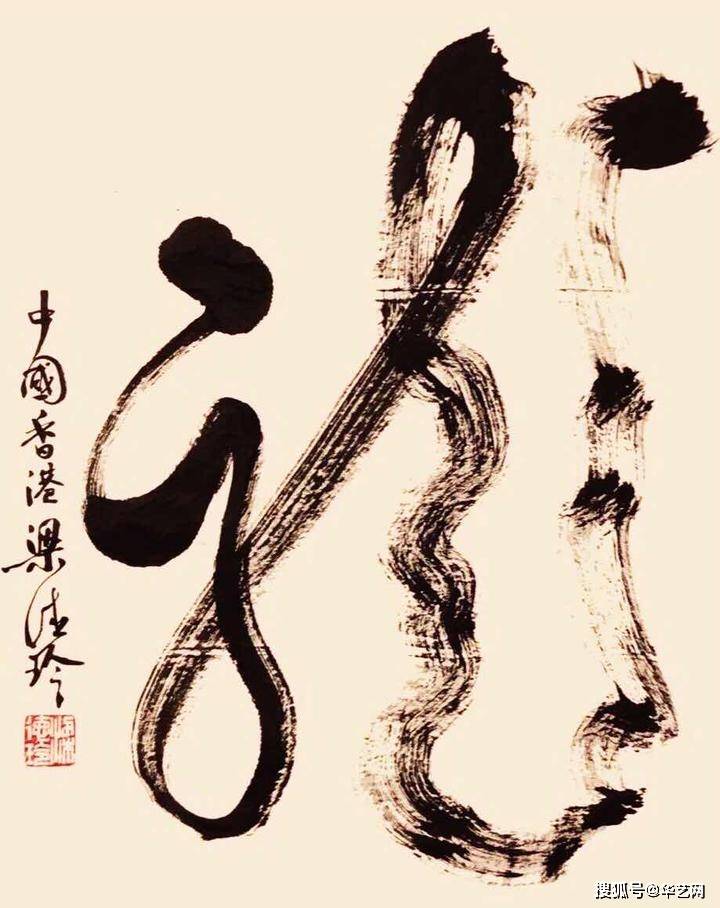 龍
中國香港梁德玲
搜狐号@华艺网